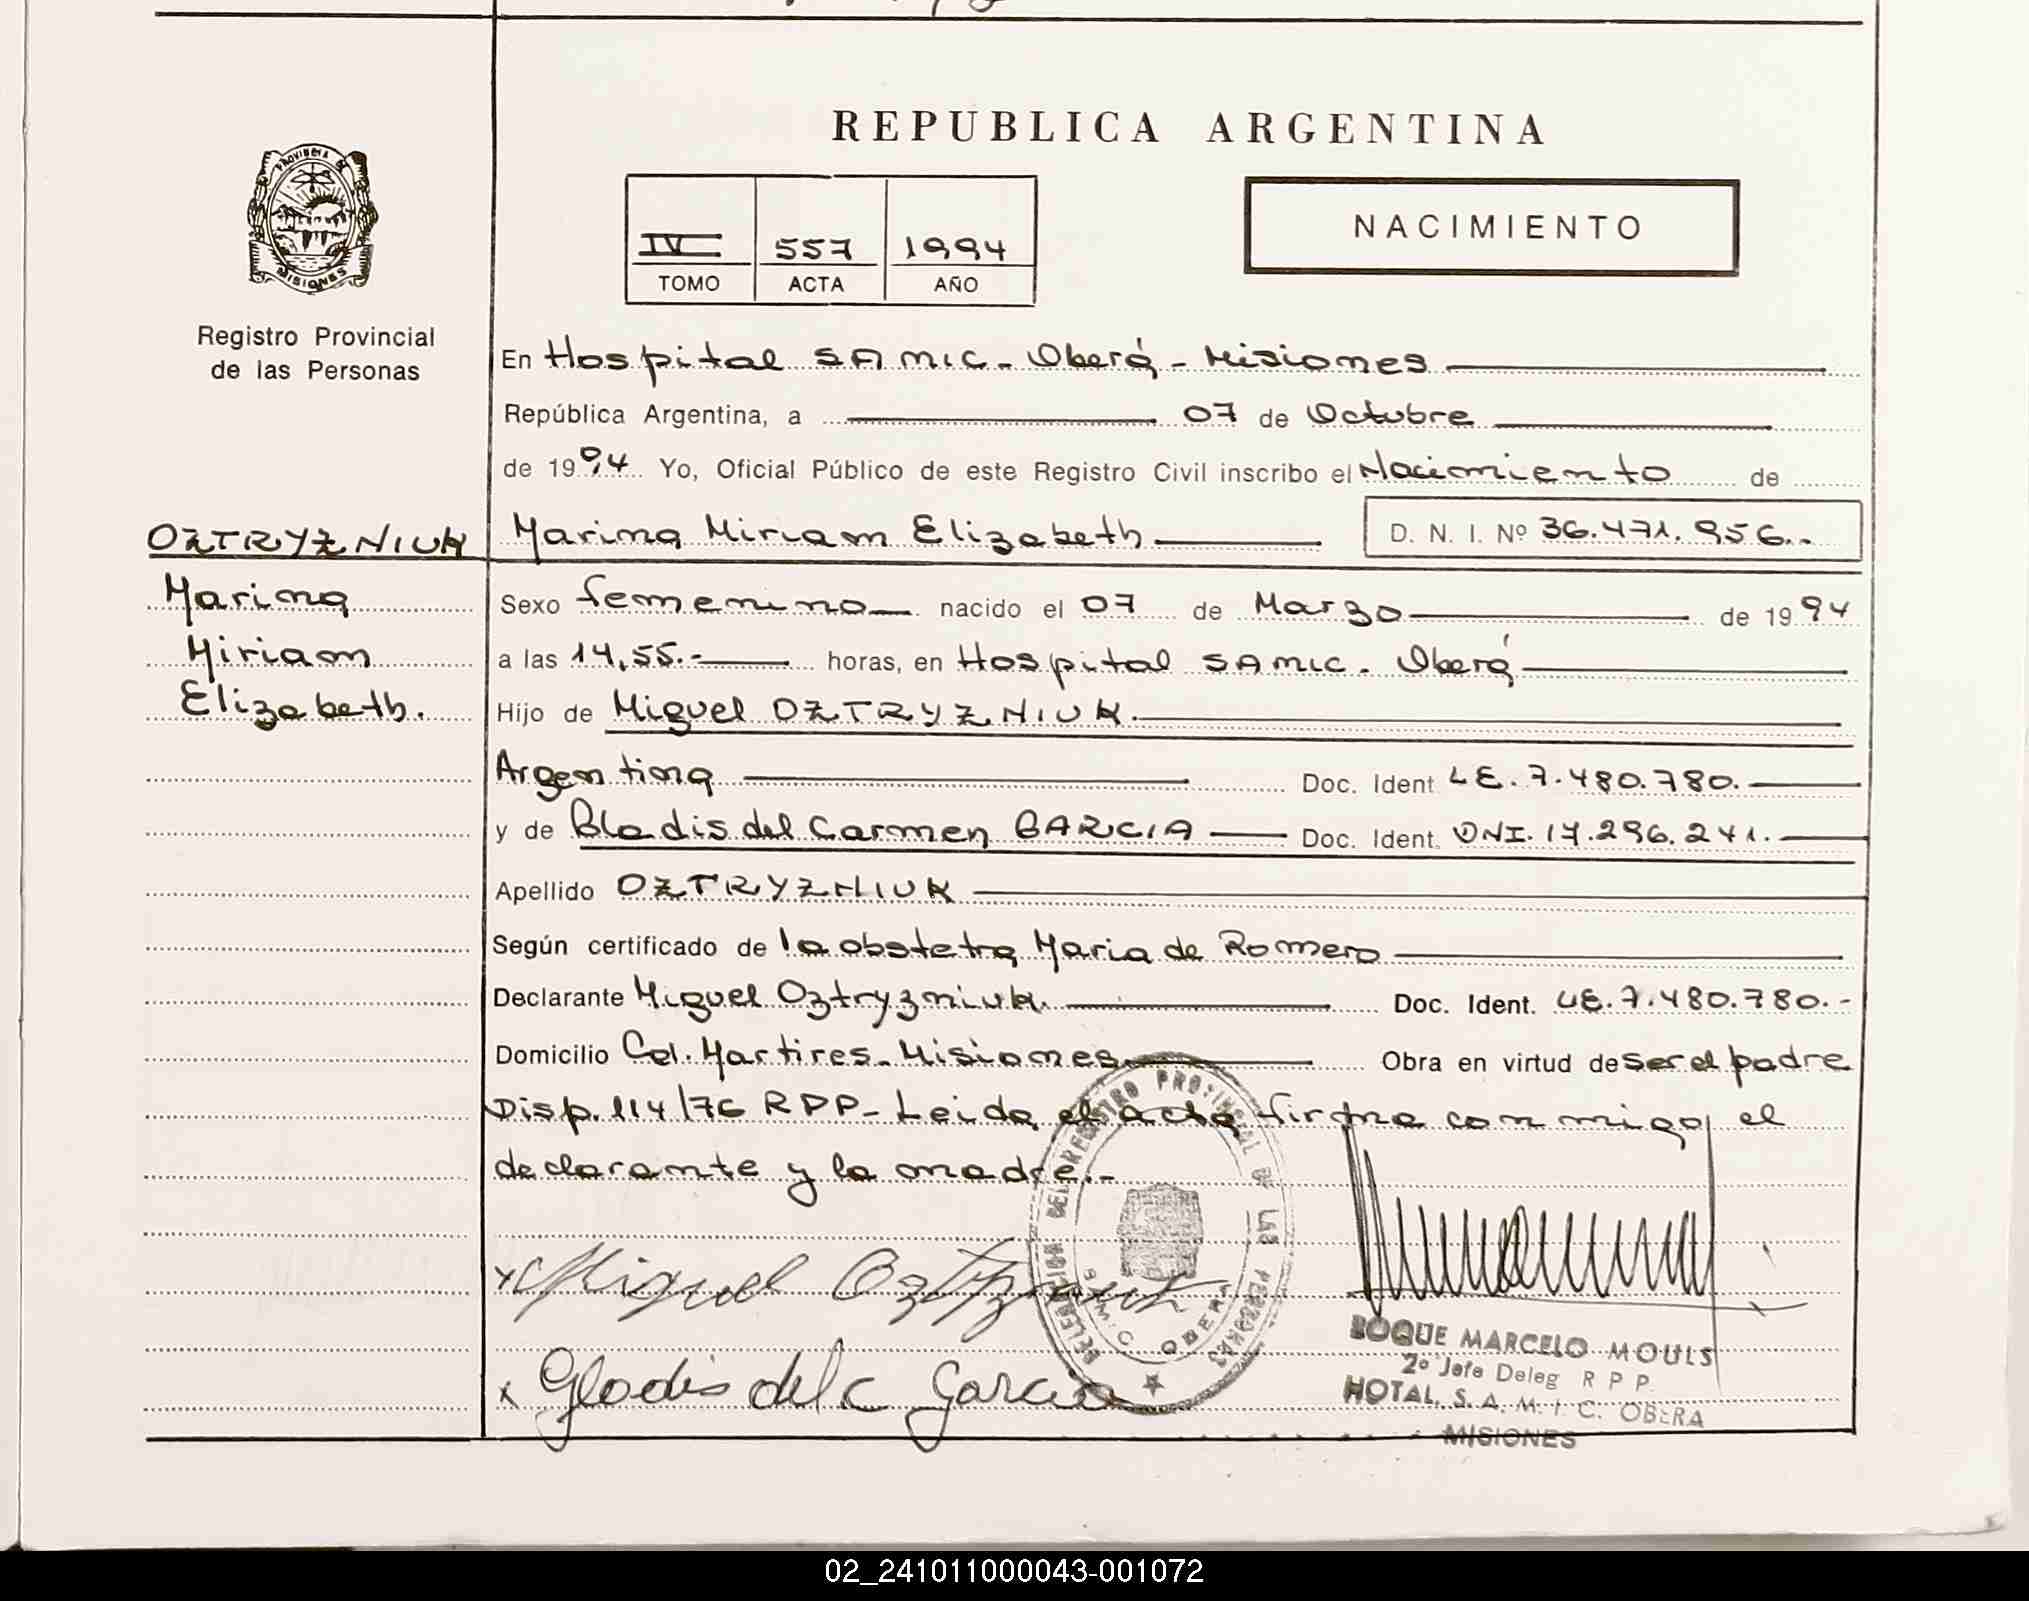 REPUBLICA ARGENTINA
PROVINCIA DE
MISIONES
Registro Provincial
de las Personas
IV 557 1994
TOMO ACTA AÑO
NACIMIENTO
En Hospital SAMIC - Oberá - Misiones
República Argentina, a 07 de Octubre
de 1994 Yo, Oficial Público de este Registro Civil inscribo el Nacimiento de
OZTRYZNIUK Marina Miriam Elizabeth D. N. I. Nº 36.471.956.-
Marina
Miriam
Elizabeth.
Sexo femenino nacido el 07 de Marzo de 1994
a las 14,55.- horas, en Hospital SAMIC. Oberá
Hijo de Miguel OZTRYZNIUK.
Argentina Doc. Ident LE. 7.480.780.
y de Gladis del Carmen GARCIA Doc. Ident. DNI. 17.296.241.
Apellido OZTRYZNIUK
Según certificado de la obstetra Maria de Romero
Declarante Miguel Oztryzniuk. Doc. Ident. LE. 7.480.780.-
Domicilio Cel. Martires - Misiones Obra en virtud de ser el padre
Disp. 114/76 RPP - Leida el acta firma conmigo el
declarante y la madre.-
DELEGACION DEL REGISTRO PROVINCIAL DE LAS PERSONAS
OBERA
x Miguel
x Gladis del C Garcia
ROQUE MARCELO MOULS
2º Jefe Deleg R P P.
HOTAL. S. A. M. I. C. OBERA
MISIONES
02_241011000043-001072